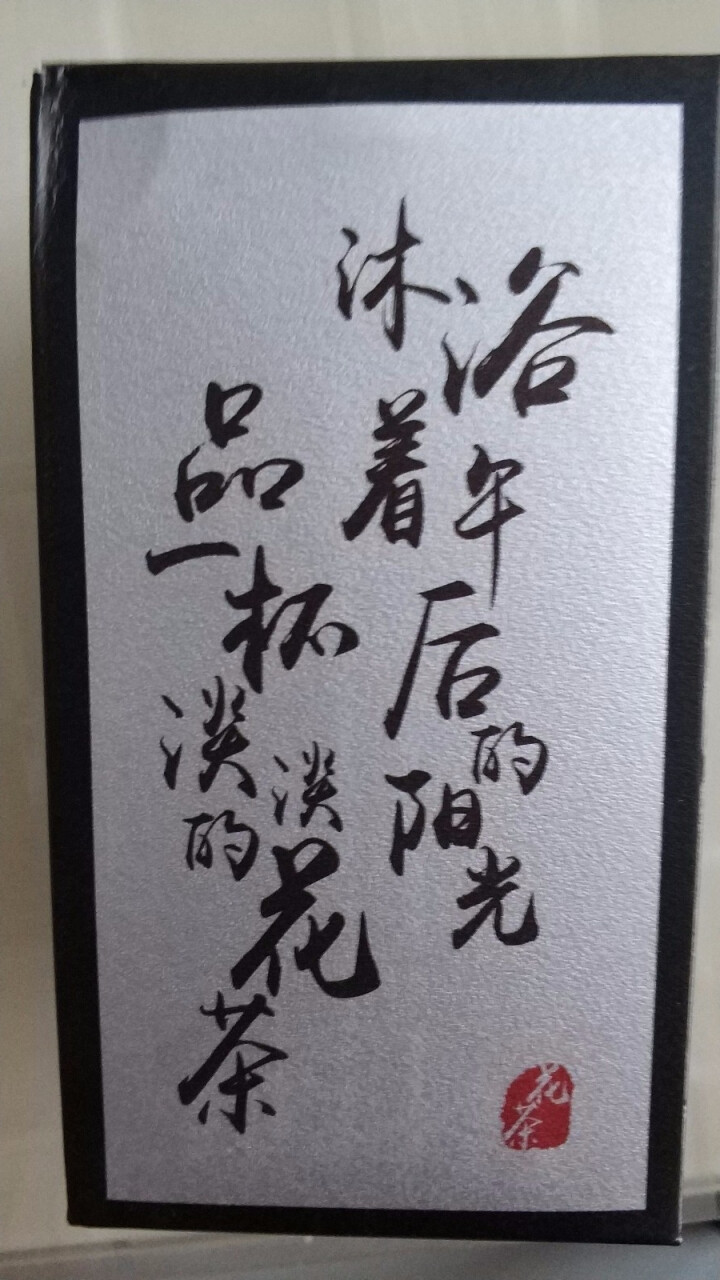 沐浴着午后的阳光
品一杯淡淡的花茶
花茶